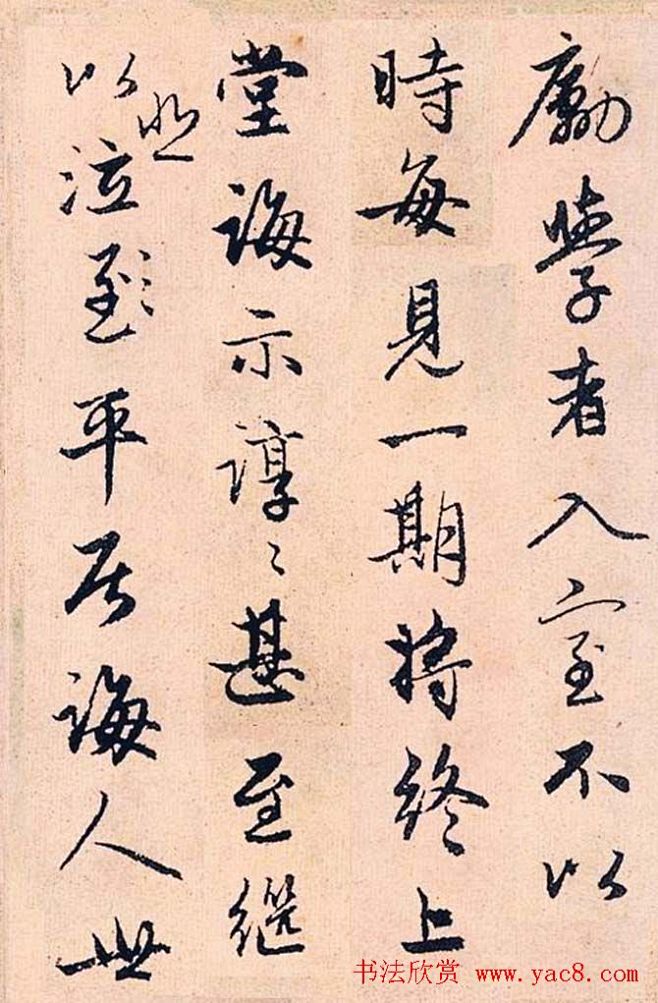 勵學者入室不以
時每見一期將終上
堂誨示諄〻甚至繼
以悲泣至平居誨人
书法欣赏 www.yac8.com